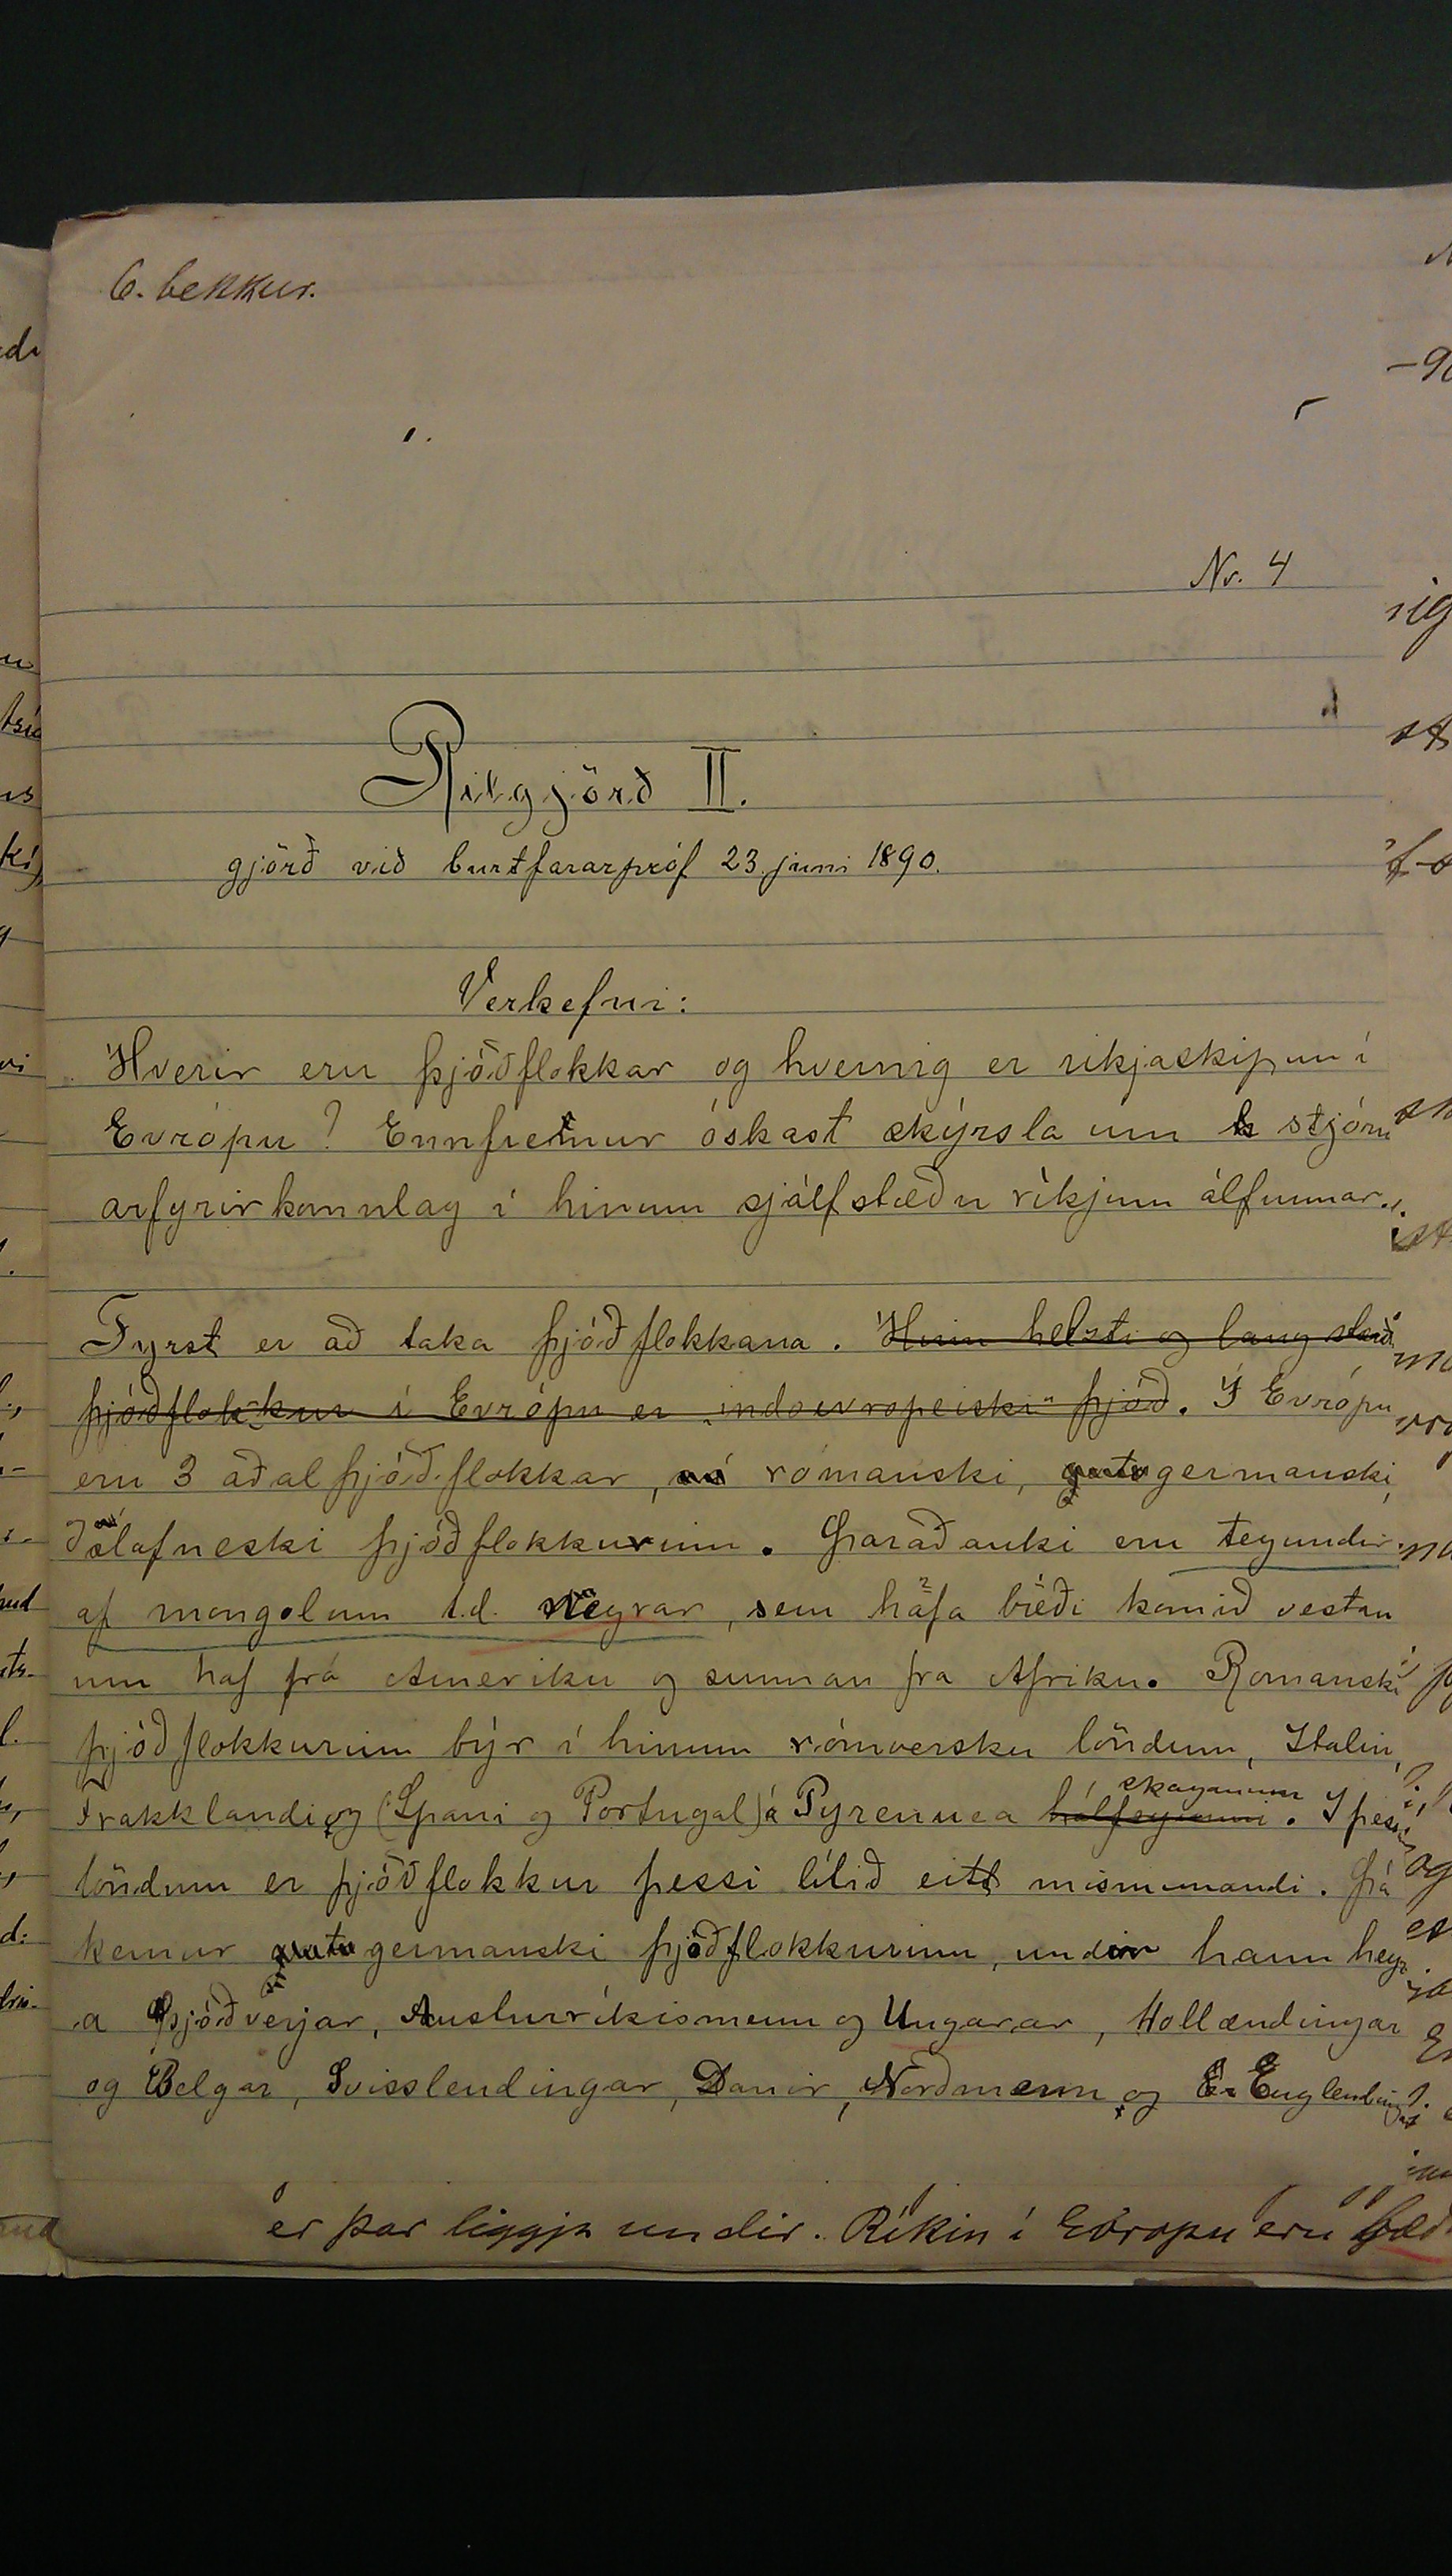 6. bekkur.
Nr. 4
Ritgjörð II.
gjörð við burtfararpróf 23. juni 1890.
Verkefni:
Hverir eru þjóðflokkar og hvernig er rikjaskipun í
Evrópu? Ennfremur óskast skýrsla um stjórn
arfyrirkomulag í hinum sjálfstæðu ríkjum álfunnar.
Fyrst er að taka þjóðflokkana. Hinn helsti og lang
þjóðflokkur í Evrópu er „indoevropeiski" þjóð. Í Evrópu
eru 3 aðalþjóðflokkar, rómanski, germanski,
slafneski þjóðflokkurinn. Þaraðauki eru tegundir
af mongolum t.d. Negrar, sem hafa bæði komið vestan
um haf frá Ameriku og sunnan fra Afriku. Romanski
þjóðflokkurinn býr í hinum rómversku löndum, Italiu,
Frakklandi og (Spani og Portugal) á Pyrenuea hálfeyjunni skaganum. Í
löndum er þjóðflokkur þessi lítið eitt mismunandi. Þá
kemur germanski þjóðflokkurinn, undir hann heyr
a Þjóðverjar, Austurríkismenn og Ungarar, Hollændingar
og Belgar, Svisslendingar, Danir, Norðmenn og Englendingar
er þar liggja undir. Ríkin í Evropu eru